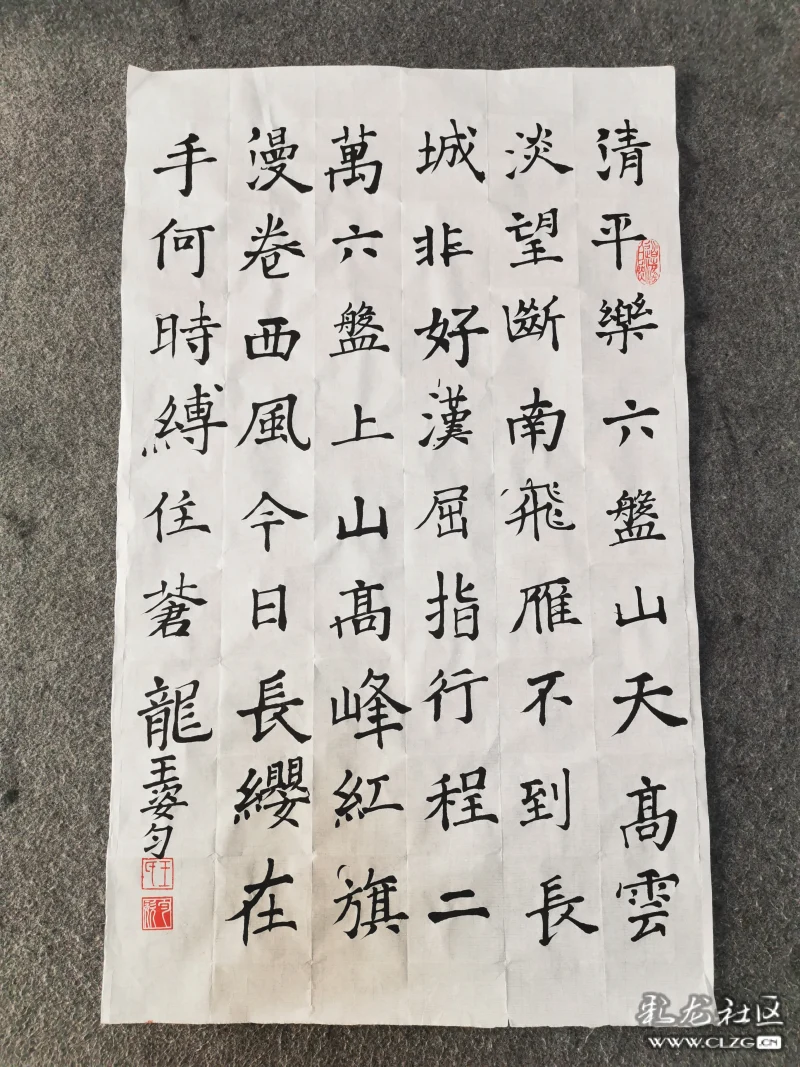 清平樂六盤山天髙雲
淡望斷南飛雁不到長
城非好漢屈指行程二
萬六盤上山髙峰紅旗
漫卷西風今日長纓在
手何時縛住蒼龍
王姿匀
彩龙社区
WWW.CLZG.CN